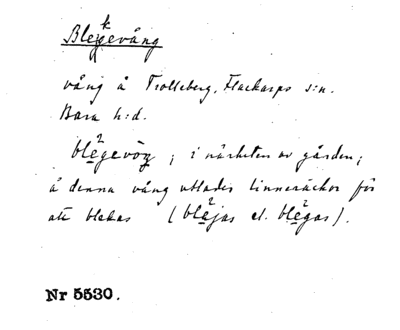 Blekevång
vång å Trolleberg, Flackarps s:n.
Bara h:d.
blēgevo̹ŋ ; i närheten av gården;
å denna vång utlades linneväckor för
att blekas (blējas el. blēgas).
Nr 5530.